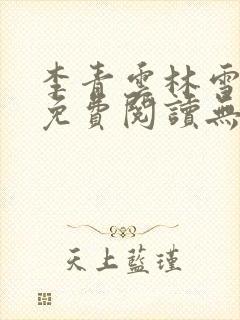 李青雲林雪
免費閱讀無
天上藍瑾